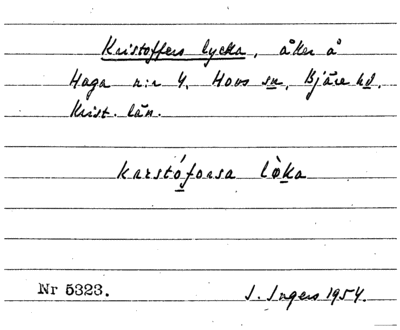 Kristoffers lycka, åker å
Haga n:r 4. Hovs sn, Bjäre hd.
Krist. län.
karstófossa lø̀ka
Nr 5323.
I. Ingers 1954.